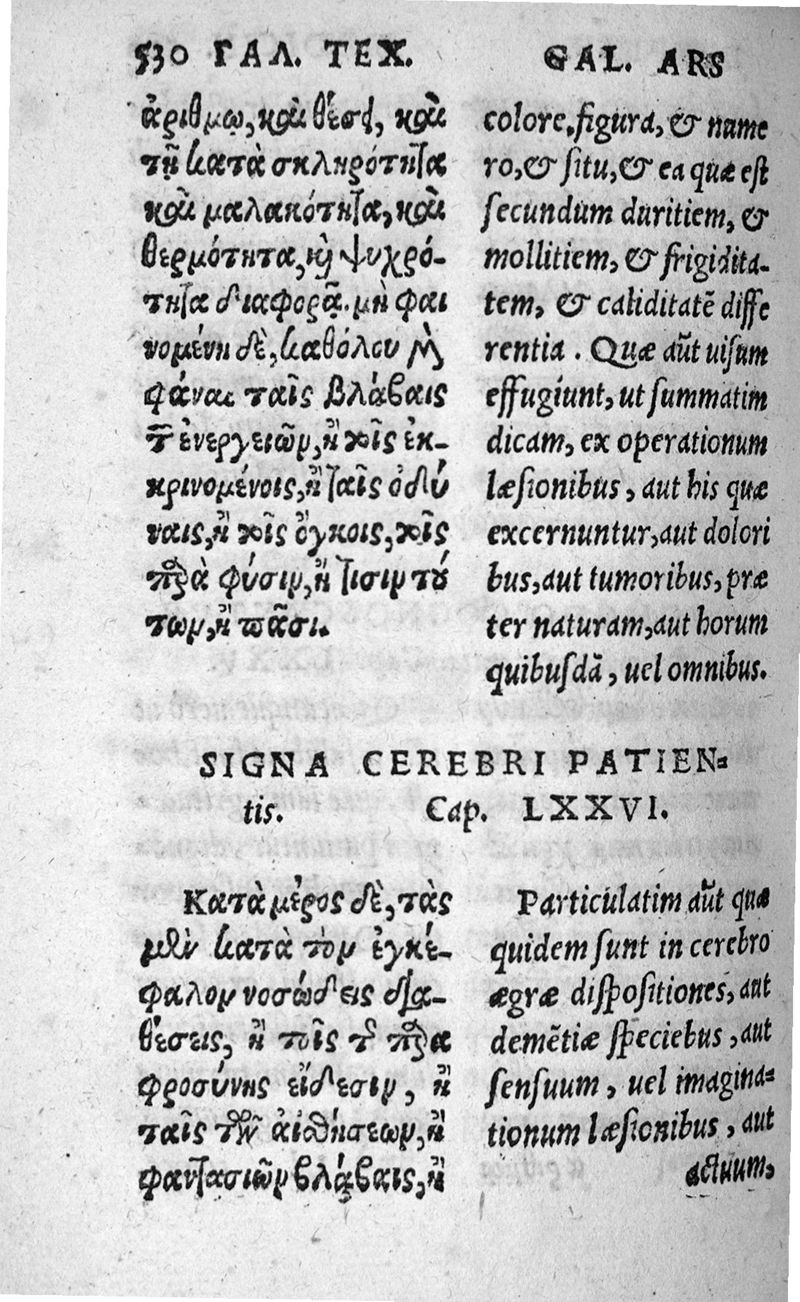 530 ΓΑΛ. ΤΕΧ.
ἀριθμῳ, καὶ θέσει, καὶ
τῇ κατὰ σκληρότητα
καὶ μαλακότητα, καὶ
θερμότητα, καὶ ψυχρό-
τητα διαφορᾷ. μὴ φαι
νομένη δὲ, καθόλου μὲν
φάναι ταῖς βλάβαις
τῶν ἐνεργειῶν, ἢ τοῖς ἐκ-
κρινομένοις, ἢ ταῖς ὀδύ
ναις, ἢ τοῖς ὄγκοις, τοῖς
παρὰ φύσιν, ἢ τισιν τού
των, ἢ πᾶσι.
GAL. ARS
colore, figura, & nume
ro, & situ, & ea quæ est
secundum duritiem, &
mollitiem, & frigidita-
tem, & caliditatẽ diffe
rentia. Quæ aũt uisum
effugiunt, ut summatim
dicam, ex operationum
læsionibus, aut his quæ
excernuntur, aut dolori
bus, aut tumoribus, præ
ter naturam, aut horum
quibusdã, uel omnibus.
SIGNA CEREBRI PATIEN-
tis. Cap. LXXVI.
Κατὰ μέρος δὲ, τὰς
μὲν κατὰ τὸν ἐγκέ-
φαλον νοσώδεις δια-
θέσεις, ἢ τοῖς τῆς παρα
φροσύνης εἴδεσιν, ἢ
ταῖς τῶν αἰσθήσεων, ἢ
φαντασιῶν βλάβαις, ἢ
Particulatim aũt quæ
quidem sunt in cerebro
ægræ dispositiones, aut
demẽtiæ speciebus, aut
sensuum, uel imagina-
tionum læsionibus, aut
actuum,